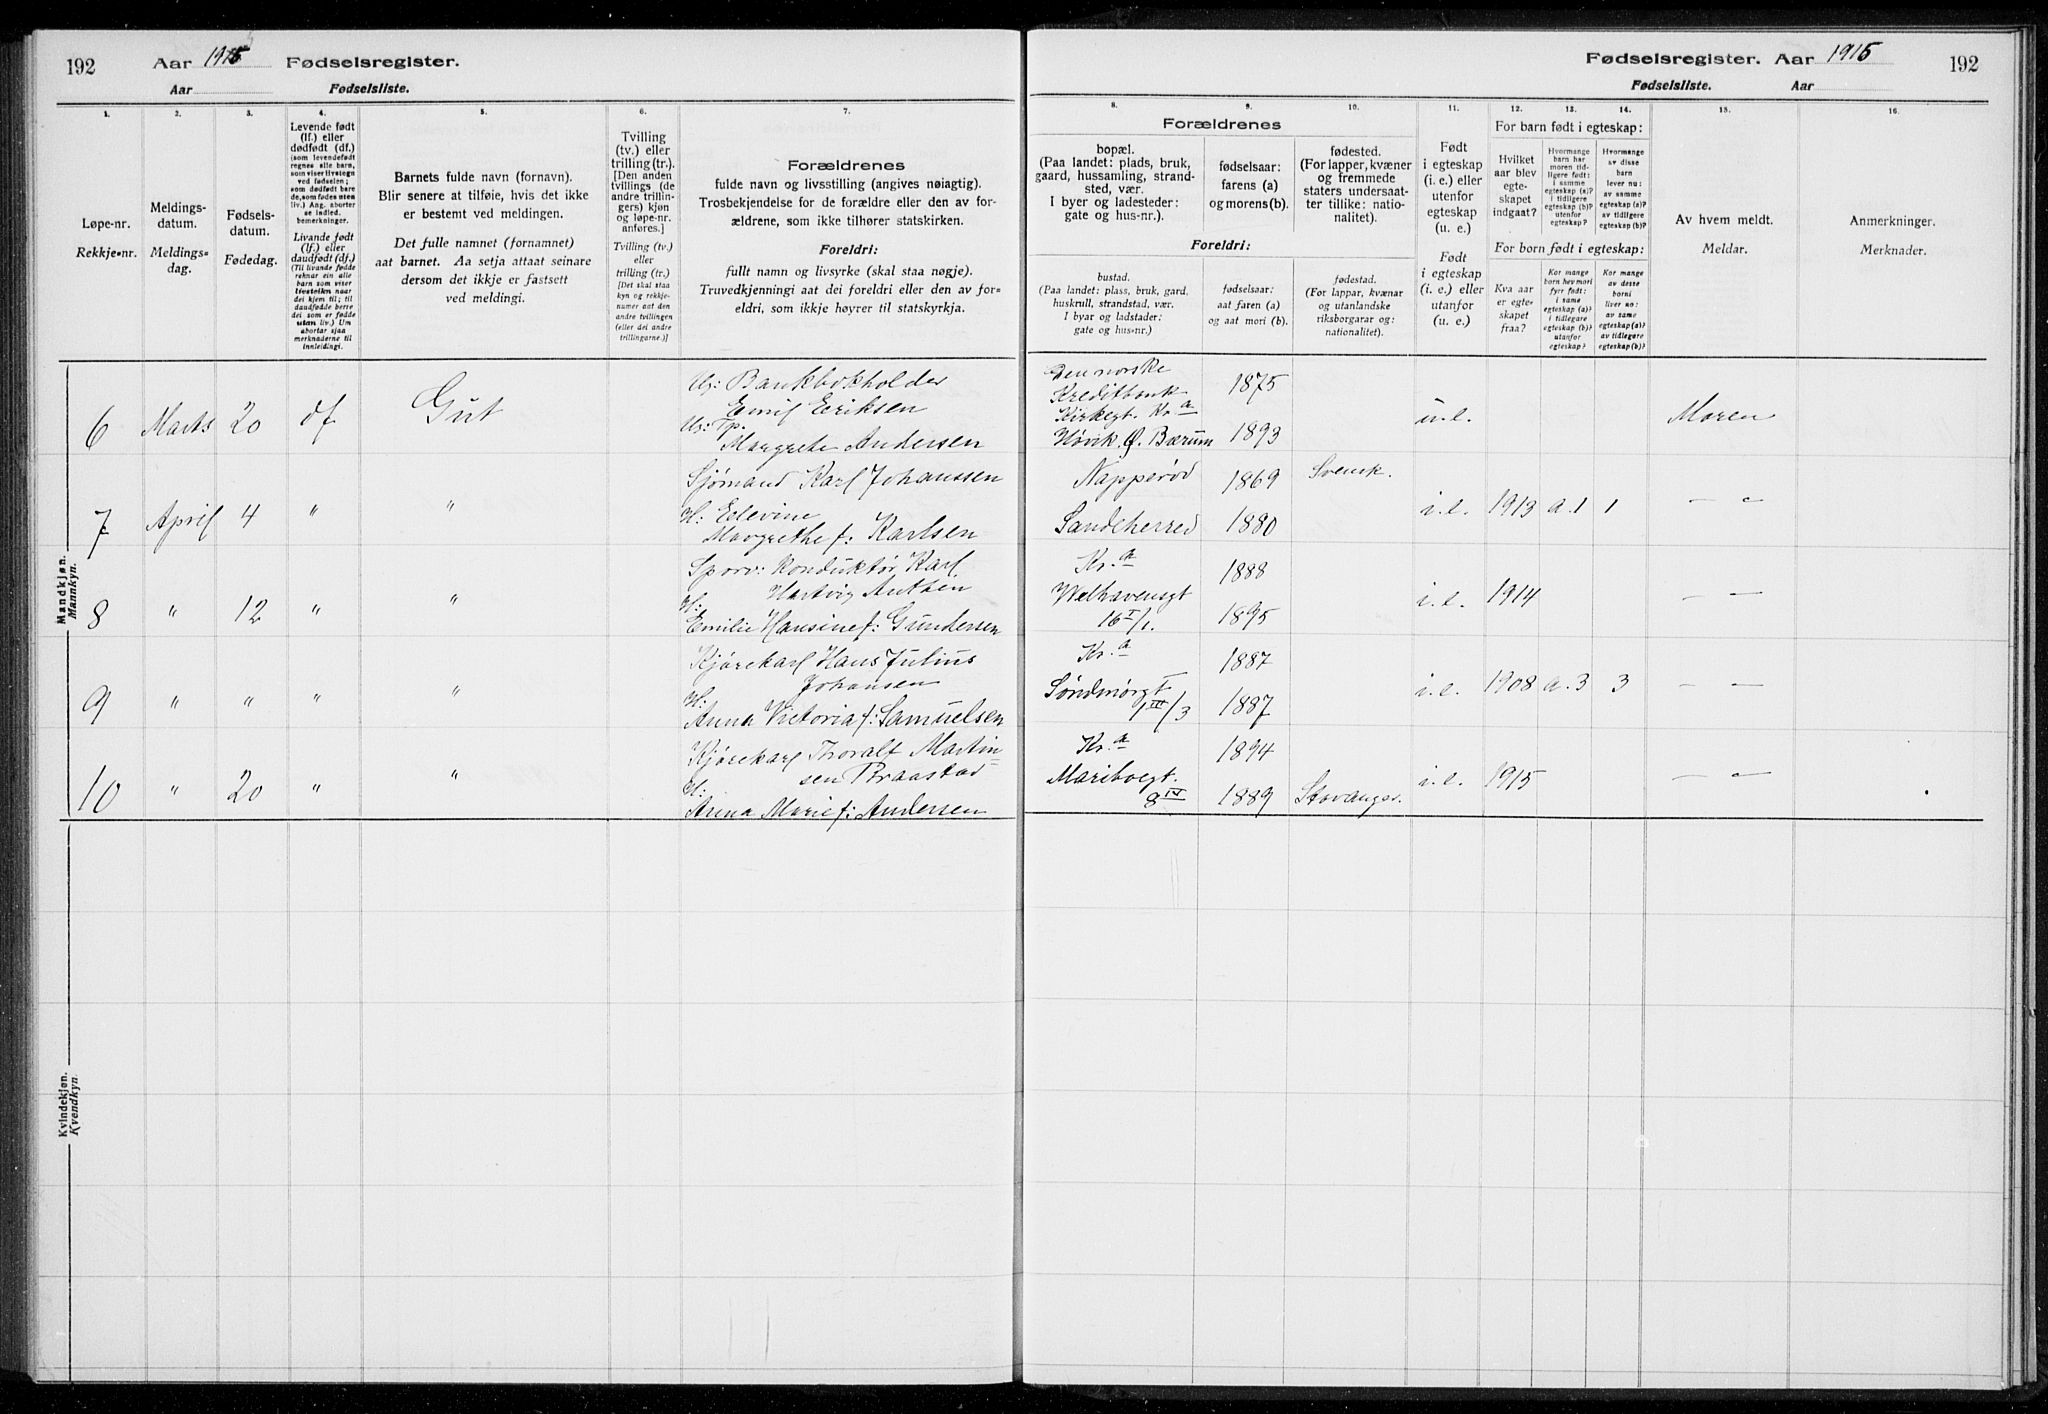 192 Aar 1915 Fødselsregister.
Aar Fødselsliste.
1. 2. 3. 4. 5. 6. 7.
Løpe-nr.
Rekkje-nr.
Meldings-
datum.
Meldings-
dag.
Fødsels-
datum.
Fødedag.
Levende født
(lf.) eller
dødfødt (df.)
(som levendefødt
regnes alle barn,
som viser livstegn
ved fødselen;
som dødfødt bare
de, som fødes uten
liv.) Ang. aborter
se indled.
bemerkninger.
Livande født
(lf.) eller
daudfødt (df.)
(Til livande fødde
reknar ein alle
barn som viser
livsteikn naar
dei kjem til; til
daudfødde berre
dei som er fødde
utan liv.) Um
abortar sjaa
merknaderne til
innleidingi.
Barnets fulde navn (fornavn).
Blir senere at tilføie, hvis det ikke
er bestemt ved meldingen.
Det fulle namnet (fornamnet)
aat barnet. Aa setja attaat seinare
dersom det ikkje er fastsett
ved meldingi.
Tvilling
(tv.) eller
trilling (tr.).
[Den anden
tvillings (de
andre trillin-
gers) kjøn
og løpe-nr.
anføres.]
Tvilling (tv.)
eller
trilling (tr.)
[Det skal staa
kyn og rekkje-
numer aat den
andre tvillingen
(eller dei andre
trillingarne.)]
Forældrenes
fulde navn og livsstilling (angives nøiagtig).
Trosbekjendelse for de forældre eller den av for-
ældrene, som ikke tilhører statskirken.
Foreldri:
fullt namn og livsyrke (skal staa nøgje).
Truvedkjenningi aat dei foreldri eller den av for-
eldri, som ikkje høyrer til statskyrkja.
Mandkjøn.
Mannkyn.
6 Marts 20 df Gut
U: Bankbokholder
Emil Eriksen
U: Tp.
Margrethe Andersen
7 April 4 " "
Sjømand Karl Johanssen
H: Edevine
Margrethe f: Karlsen
8 " 12 " "
Sporv: konduktør Karl
Hartvig Antsen
H:
Emilie Hansine f: Gundersen
9 " " " "
Kjørekarl Hans Julius
Johansen
H:
Anna Victoria f: Samuelsen
10 " 20 " "
Kjørekarl Thoralf Martin=
sen Braastad
H:
Anna Marie f: Andersen
Kvindekjøn.
Kvendkyn.
Fødselsregister. Aar 1915 192
Fødselsliste. Aar
8. 9. 10. 11. 12. 13. 14. 15. 16.
Forældrenes
bopæl.
(Paa landet: plads, bruk,
gaard, hussamling, strand-
sted, vær.
I byer og ladesteder:
gate og hus-nr.)
fødselsaar:
farens (a)
og morens (b).
fødested.
(For lapper, kvæner
og fremmede
staters undersaat-
ter tillike: natio-
nalitet).
Foreldri:
bustad.
(Paa landet: plass, bruk, gard,
huskrull, strandstad, vær.
I byar og ladstader:
gate og hus-nr.)
fødselsaar:
aat faren (a)
og aat mori (b).
fødestad.
(For lappar, kvænar
og utanlandske
riksborgarar og:
nationalitet).
Født
i egteskap
(i. e.) eller
utenfor
egteskap
(u. e.)
Født
i egteskap
(i. e.) eller
utanfor
(u. e.)
For barn født i egteskap:
Hvilket
aar blev
egte-
skapet
indgaat?
Hvormange
barn har
moren tid-
ligere født:
i samme
egteskap (a)?
i tidligere
egteskap (b)?
utenfor
egteskap?
Hvormange
av disse
barn
lever nu:
av samme
egteskap (a)?
av tidligere
egteskap (b)?
For born født i egteskap:
Kva aar
er egte-
skapet
fraa?
Kor mange
born hev mori
fyrr født:
i same
egteskap (a)?
i tidlegare
egteskap (b)?
utanfor
egteskap?
Kor mange
av desse
borni
liver no:
av same
egteskap (a)?
av tidlegare
egteskap (b)?
Av hvem meldt.
Meldar.
Anmerkninger.
Merknader.
Den norske
Kreditbank
Kirkegt. Kr.a
1875
Høvik. Ø. Bærum 1893
u.e. Moren
Napperød 1869 Svensk.
Sandeherred 1880
i.e. 1913 a.1 1 — " —
Kr.a 1888
Welhavensgt
16 I/1. 1895
i.e. 1914 — " —
Kr.a 1887
Søndmørgt
1 III/3 1887
i.e. 1908 a.3 3 — " —
Kr.a 1894
Maribogt.
8 IV 1889 Stavanger.
i.e. 1915 — " —